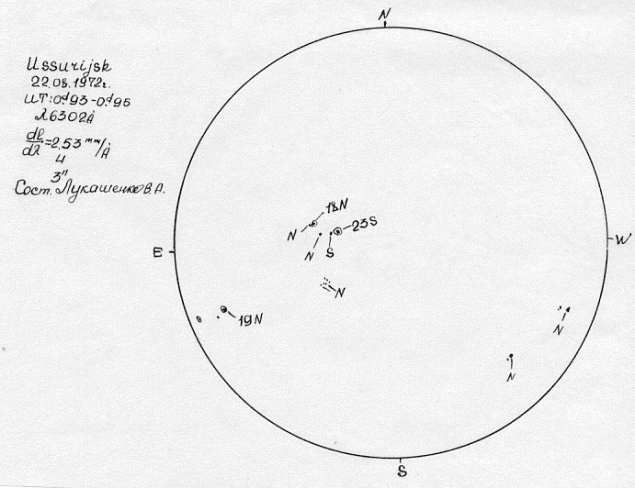 N
Ussurijsk
22.08.1972г.
UT:0d93-0d95
λ6302Å
dl/dλ=2,53 mm/Å
4
3"
Сост. Лукашенко В.А.
18N
N
23S
N
S
E
W
N
19N
N
N
S